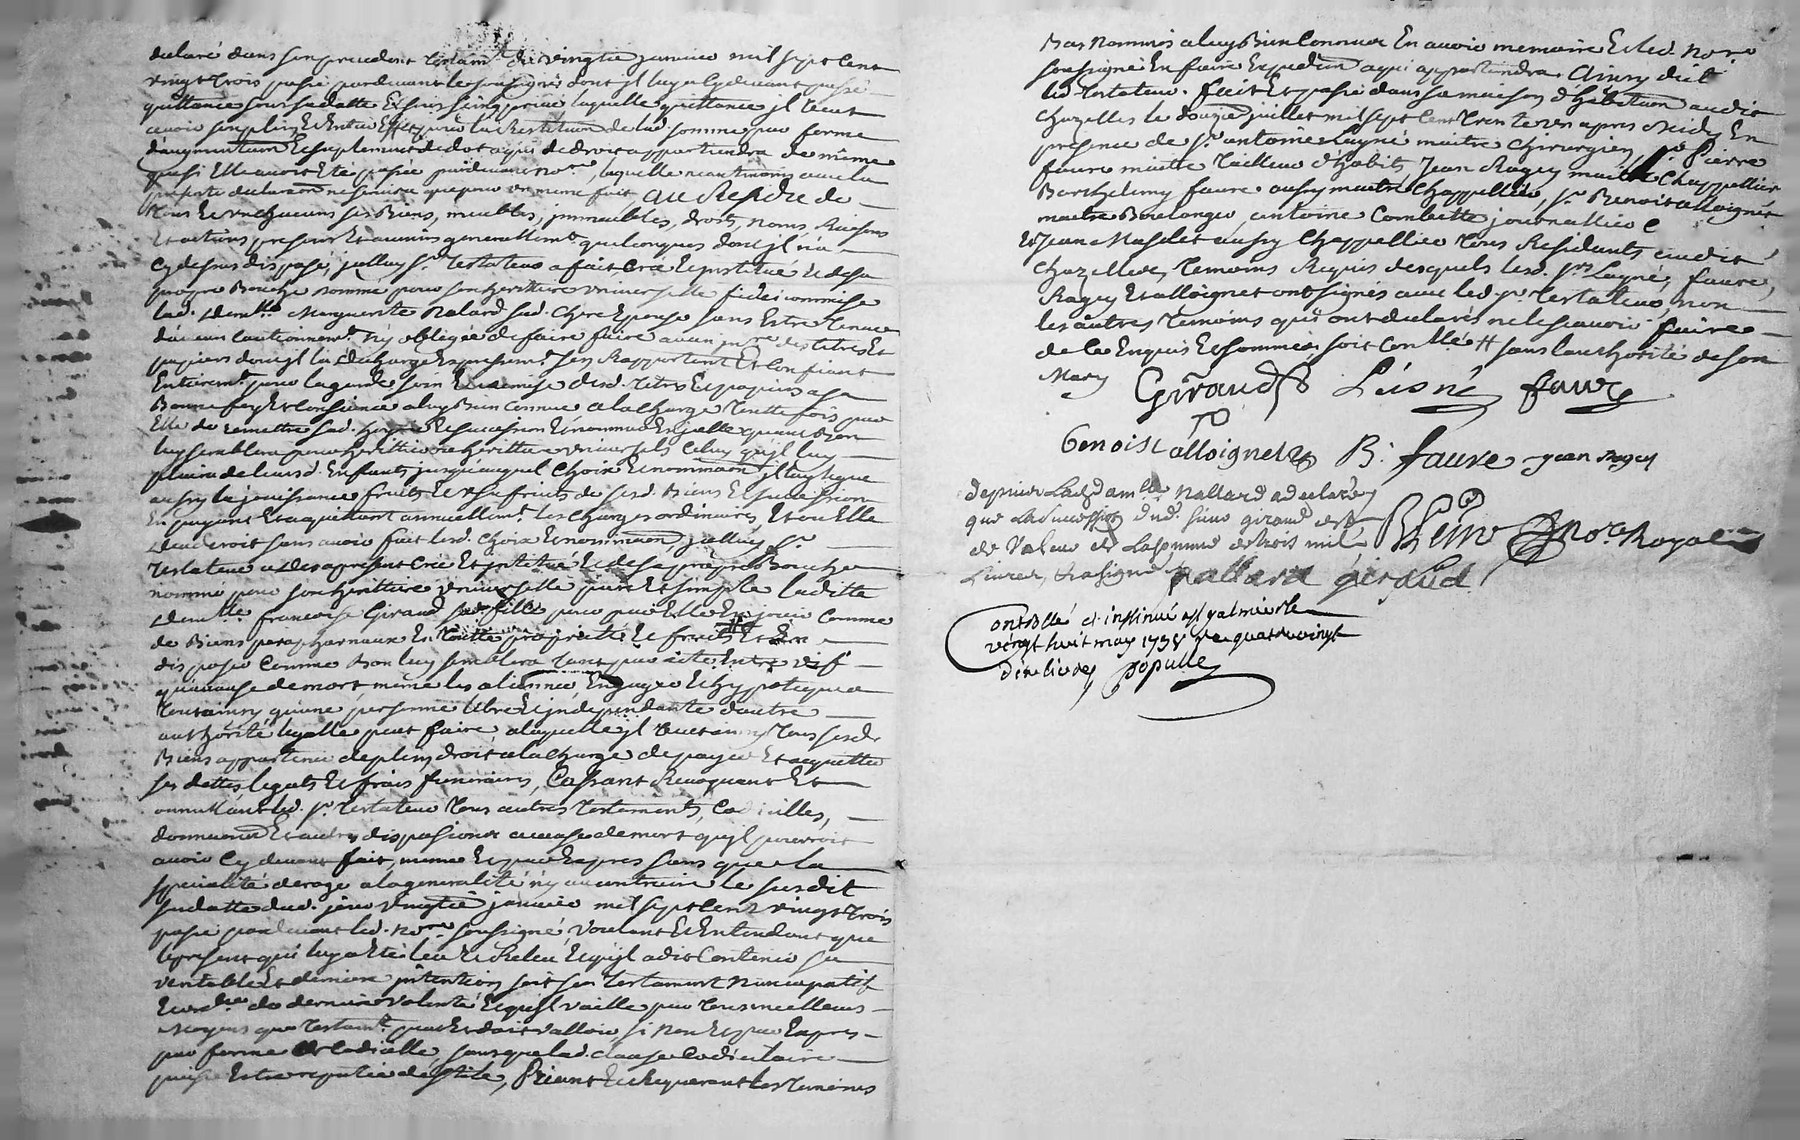 declaré dans son precedent testam.t du vingtie janvier mil sept cent
vingt trois passé pardevant le soussigné dont jl luy a cy devant passé
quittance sous sa datte Et sous seing privé laquelle quittance jl veut
avoir son plein Et Entier Effet pour la Restitu͠on de lad. somme par forme
d'augmentation Et suplement de dot a qui de droit appartiendra de même
que si Elle avoit Eté passée pardevant no.re, laquelle neantmoins avec la
presente declara͠on ne servira que pour un même fait au Residu de
tous Et un chacuns ses Biens, meubles, jmmeubles, droits, noms, Raisons
Et actions presents Et avenirs generallem.t quelconques dont jl n'a
cy dessus disposé, jcelluy s.r testateur a fait créé Et jnstitué Et de sa
propre Bouche nommé pour son heritiere universelle fideicommise
lad. demlle Marguerite Nalard sad. chere Epouse sans Estre tenue
d'aucun cautionnem.t n'y obligée de faire faire aucun inv.re des titres Et
papiers dont jl la decharge Expressem.t s'en Rapportant Et Confiant
Entierem.t pour la garde soin Et remise desd. titres Et papiers a sa
Bonne foy Et Confiance a luy Bien Connue a la charge toutte fois par
Elle de remettre sad. hoyrie Et succession Et nommer En jcelle quand Bon
luy semblera pour heritier ou heritiere universels celuy qu'jl luy
plaira de leursd. Enfants jusqu'auquel Choix Et nomination jl luy legue
aussy la jouissance fruits Et usufruits de sesd. Biens Et succession
En payant Et acquittant annuellem.t les Charges ordinaires, Et ou Elle
decederoit sans avoir fait lesd. choix Et nomination, jcelluy s.r
testateur a des apresent créé Et jnstitué Et de sa propre Bouche
nommé pour son heritiere universelle pure Et simple laditte
demlle francoise Giraud sad. fille pour par Elle En jouir Comme
de Biens paraphernaux En toutte proprieté Et fruits Et En
disposer Comme Bon luy semblera tant par acte Entre vif
qu'a cause de mort même les aliener, Engager Et hypotequer
tout ainsy qu'une personne libre Et jndependante d'autre
authorité legalle peut faire, a laquelle jl veut tous sesd.
Biens appartenir de plein droit a la charge de payer Et acquitter
ses dettes legats Et frais funeraires, Cassant Revoquant Et
annullant led. s.r testateur tous autres testaments, Codicilles,
dona͠ons Et autres dispositions a cause de mort qu'jl pourroit
avoir Cy devant fait, même Et par Expres sans que la
specialité deroge a la generalité n'y au contraire le susdit
sa datte dud. jour vingtie janvier mil sept cent vingt trois
passé pardevant led. no.re soussigné, Voulant Et Entendant que
le present qui luy a Eté leu Et Releu Et qu'jl a dit Contenir sa
veritable Et derniere jntention soit son testament nuncupatif
Et ord.ce de derniere volonté Et qu'jl vaille par tous meilleurs
moyens que testam.t peut Et doit valloir, si non Et par Expres
par forme de Codicille, sans que lad. clause codicilaire
puisse Estre reputée de stile, Priant Et Requerant les temoins
Bas Nommés a luy Bien Connus En avoir memoire Et led. No.re
soussigné En faire Expedi͠on a qui appartiendra. Ainsy dit
led. testateur. fait Et passé dans sa maison d'habita͠on audit
Chazelles le douzie juillet mil sept Cent trente un apres Midy En
presence de s.r antoine Layné maitre chirurgien, s.r Pierre
faure maitre tailleur d'habits, Jean Ragey maitre Chappellier
Barthelemy faure aussy maitre Chappellier, s.r Benoit alloignet
maitre Boulanger, antoine Combette journallier
Et Jean Maselet aussy Chappellier tous Residants audit
Chazelles, temoins Requis desquels lesd. s.rs Layné, faure,
Ragey Et alloignet ont signés avec led. s.r testateur, non
les autres temoins qui ont declarés ne le scavoir faire
de ce Enquis Et sommés, soit Contllé # sans l'authorité de son
Mary
Giraud Léiné faure
Benoist alloignet B. faure jean ragey
depuis Lad. damlle Nallard a declaré
que La succession dud. sieur giraud est
de valeur de La somme de trois mil
Livres, Et a signé nallard geraud
no.re Royal
Controllé et insinué a st galmier le
vingt huit may 1735 r. quatre vingt
dix livres populle